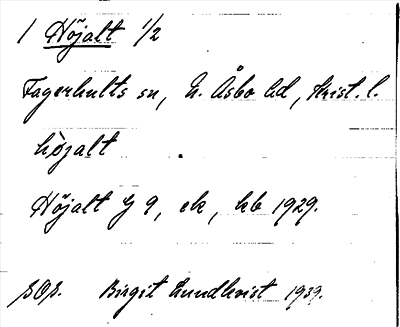 1 Höjalt 1/2
Fagerhults sn, N. Åsbo hd, Krist. l.
højalt
Höjalt J 9, ek, kb 1929.
sOs. Birgit Lundkvist 1939.